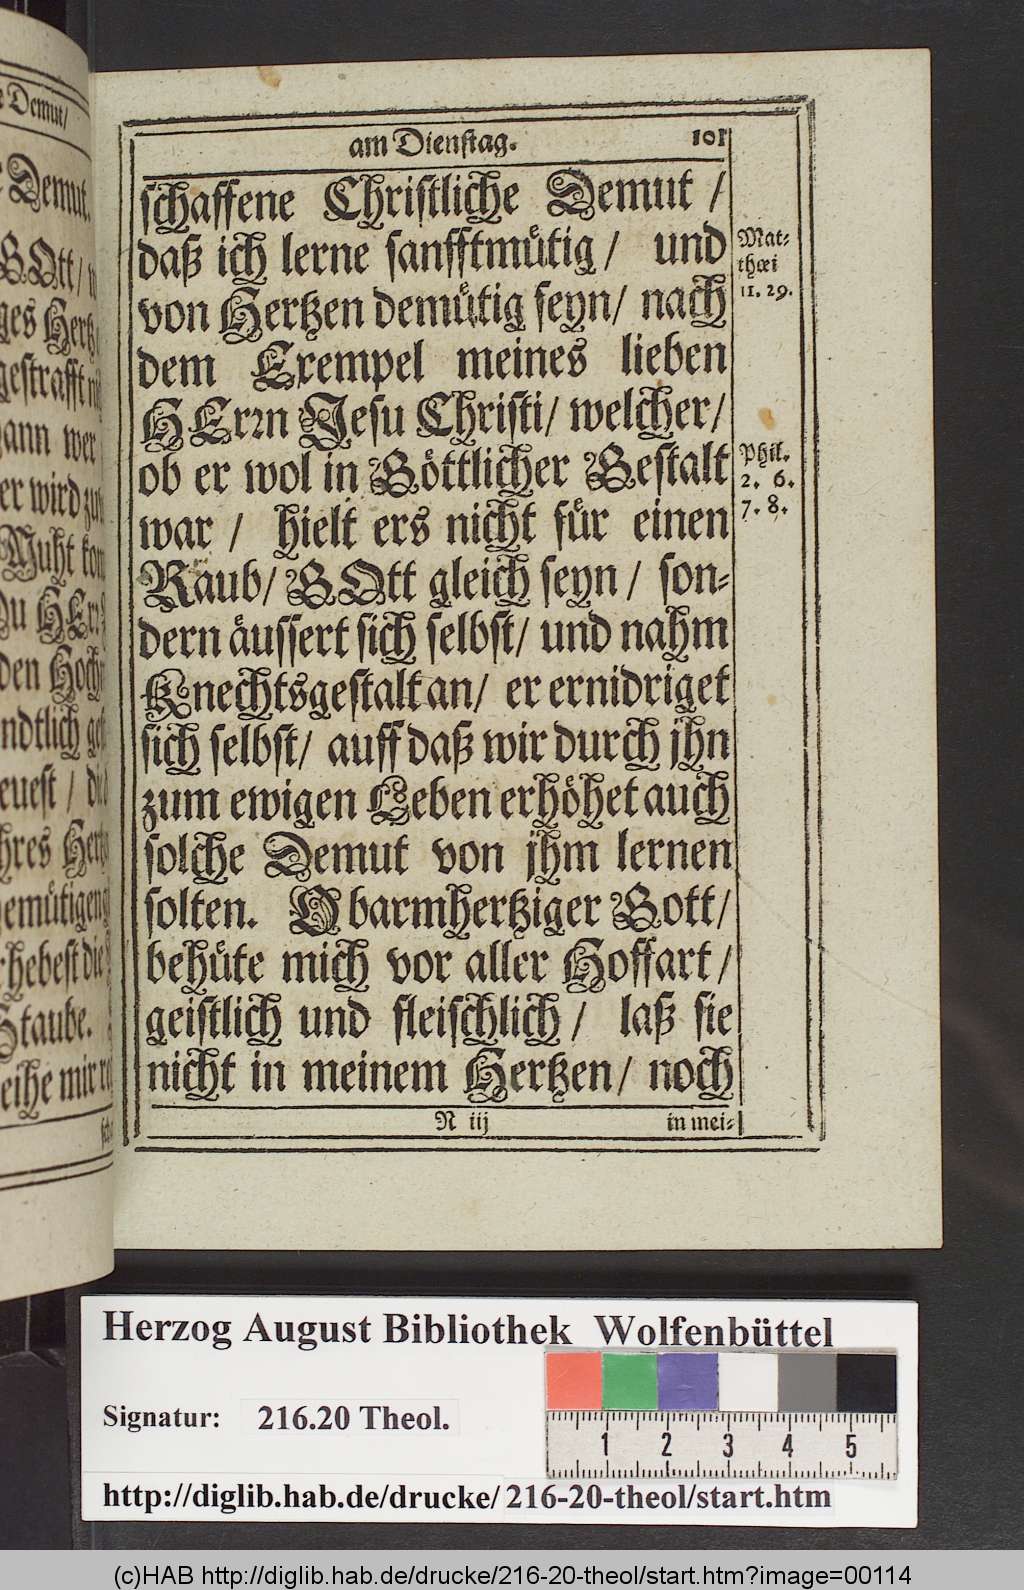 e Demut/
Demut.
GOtt/
ges Hertz
gestrafft
wer
er wird
Muht
HErr
den
ndtlich
euest /
hres
rhebest die
Staube.
eihe mir
am Dienstag. 101
schaffene Christliche Demut /
daß ich lerne sanfftmütig / und
von Hertzen demütig seyn / nach
dem Exempel meines lieben
HErrn Jesu Christi / welcher /
ob er wol in Göttlicher Gestalt
war / hielt ers nicht für einen
Raub / GOtt gleich seyn / son-
dern äussert sich selbst / und nahm
Knechtsgestalt an / er ernidriget
sich selbst / auff daß wir durch jhn
zum ewigen Leben erhöhet auch
solche Demut von jhm lernen
solten. O barmhertziger Gott /
behüte mich vor aller Hoffart /
geistlich und fleischlich / laß sie
nicht in meinem Hertzen / noch
N iij in mei-
Mat-
thæi
11. 29.
Phil.
2. 6.
7. 8.
Herzog August Bibliothek Wolfenbüttel
Signatur: 216.20 Theol.
1 2 3 4 5
http://diglib.hab.de/drucke/216-20-theol/start.htm
(c)HAB http://diglib.hab.de/drucke/216-20-theol/start.htm?image=00114